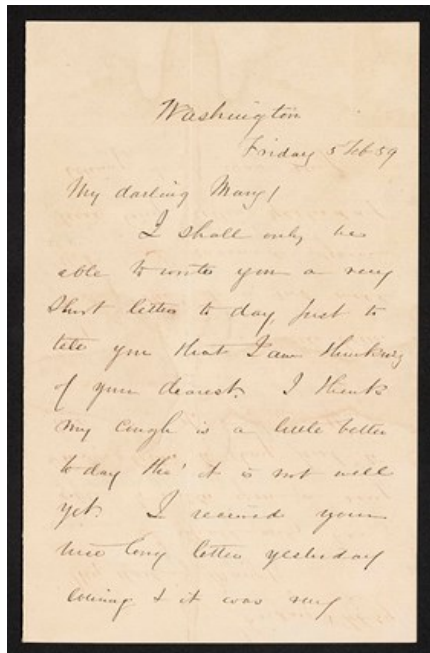 Washington
Friday 5 Feb 59
My darling Mary!
I shall only be
able to write you a very
short letter to day, just to
tell you that I am thinking
of you dearest. I think
my cough is a little better
to day tho' it is not well
yet. I received your
nice long letter yesterday
evening & it was very